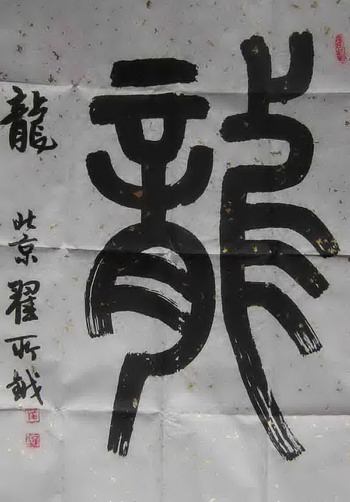 龍
龍
北京翟所越